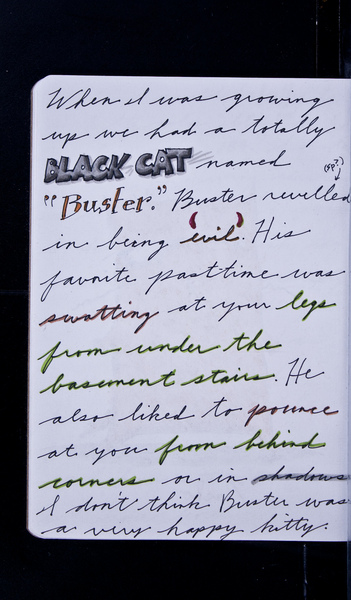 When I was growing
up we had a totally
BLACK CAT named
(sp?)
"Buster." Buster revelled
in being (evil). His
favorite past-time was
swatting at your legs
from under the
basement stairs. He
also liked to pounce
at you from behind
corners or in shadows
I don't think Buster was
a very happy kitty.